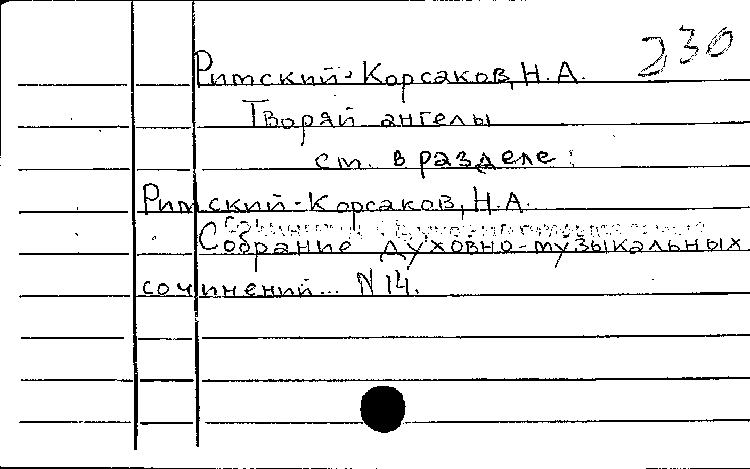 230
Римский-Корсаков, Н.А.
Творяй ангелы
см. в разделе:
Римский-Корсаков, Н.А.
Собрание духовно-музыкальных
сочинений... N 14.